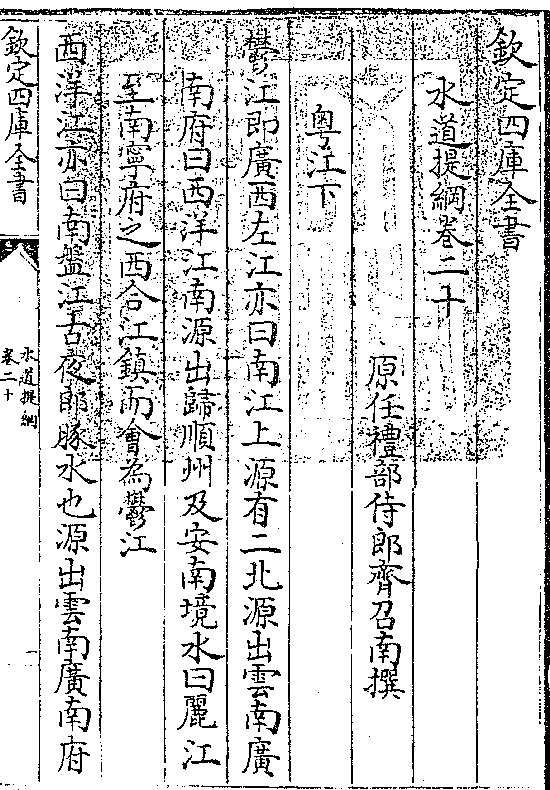 欽定四庫全書
水道提綱卷二十
原任禮部侍郎齊召南撰
粤江下
鬱江即廣西左江亦曰南江上源有二北源出雲南廣
南府曰西洋江南源出歸順州及安南境水曰麗江
至南寧府之西合江鎮而會為鬱江
西洋江亦曰南盤江古夜郎豚水也源出雲南廣南府
欽定四庫全書
水道提綱
卷二十
一